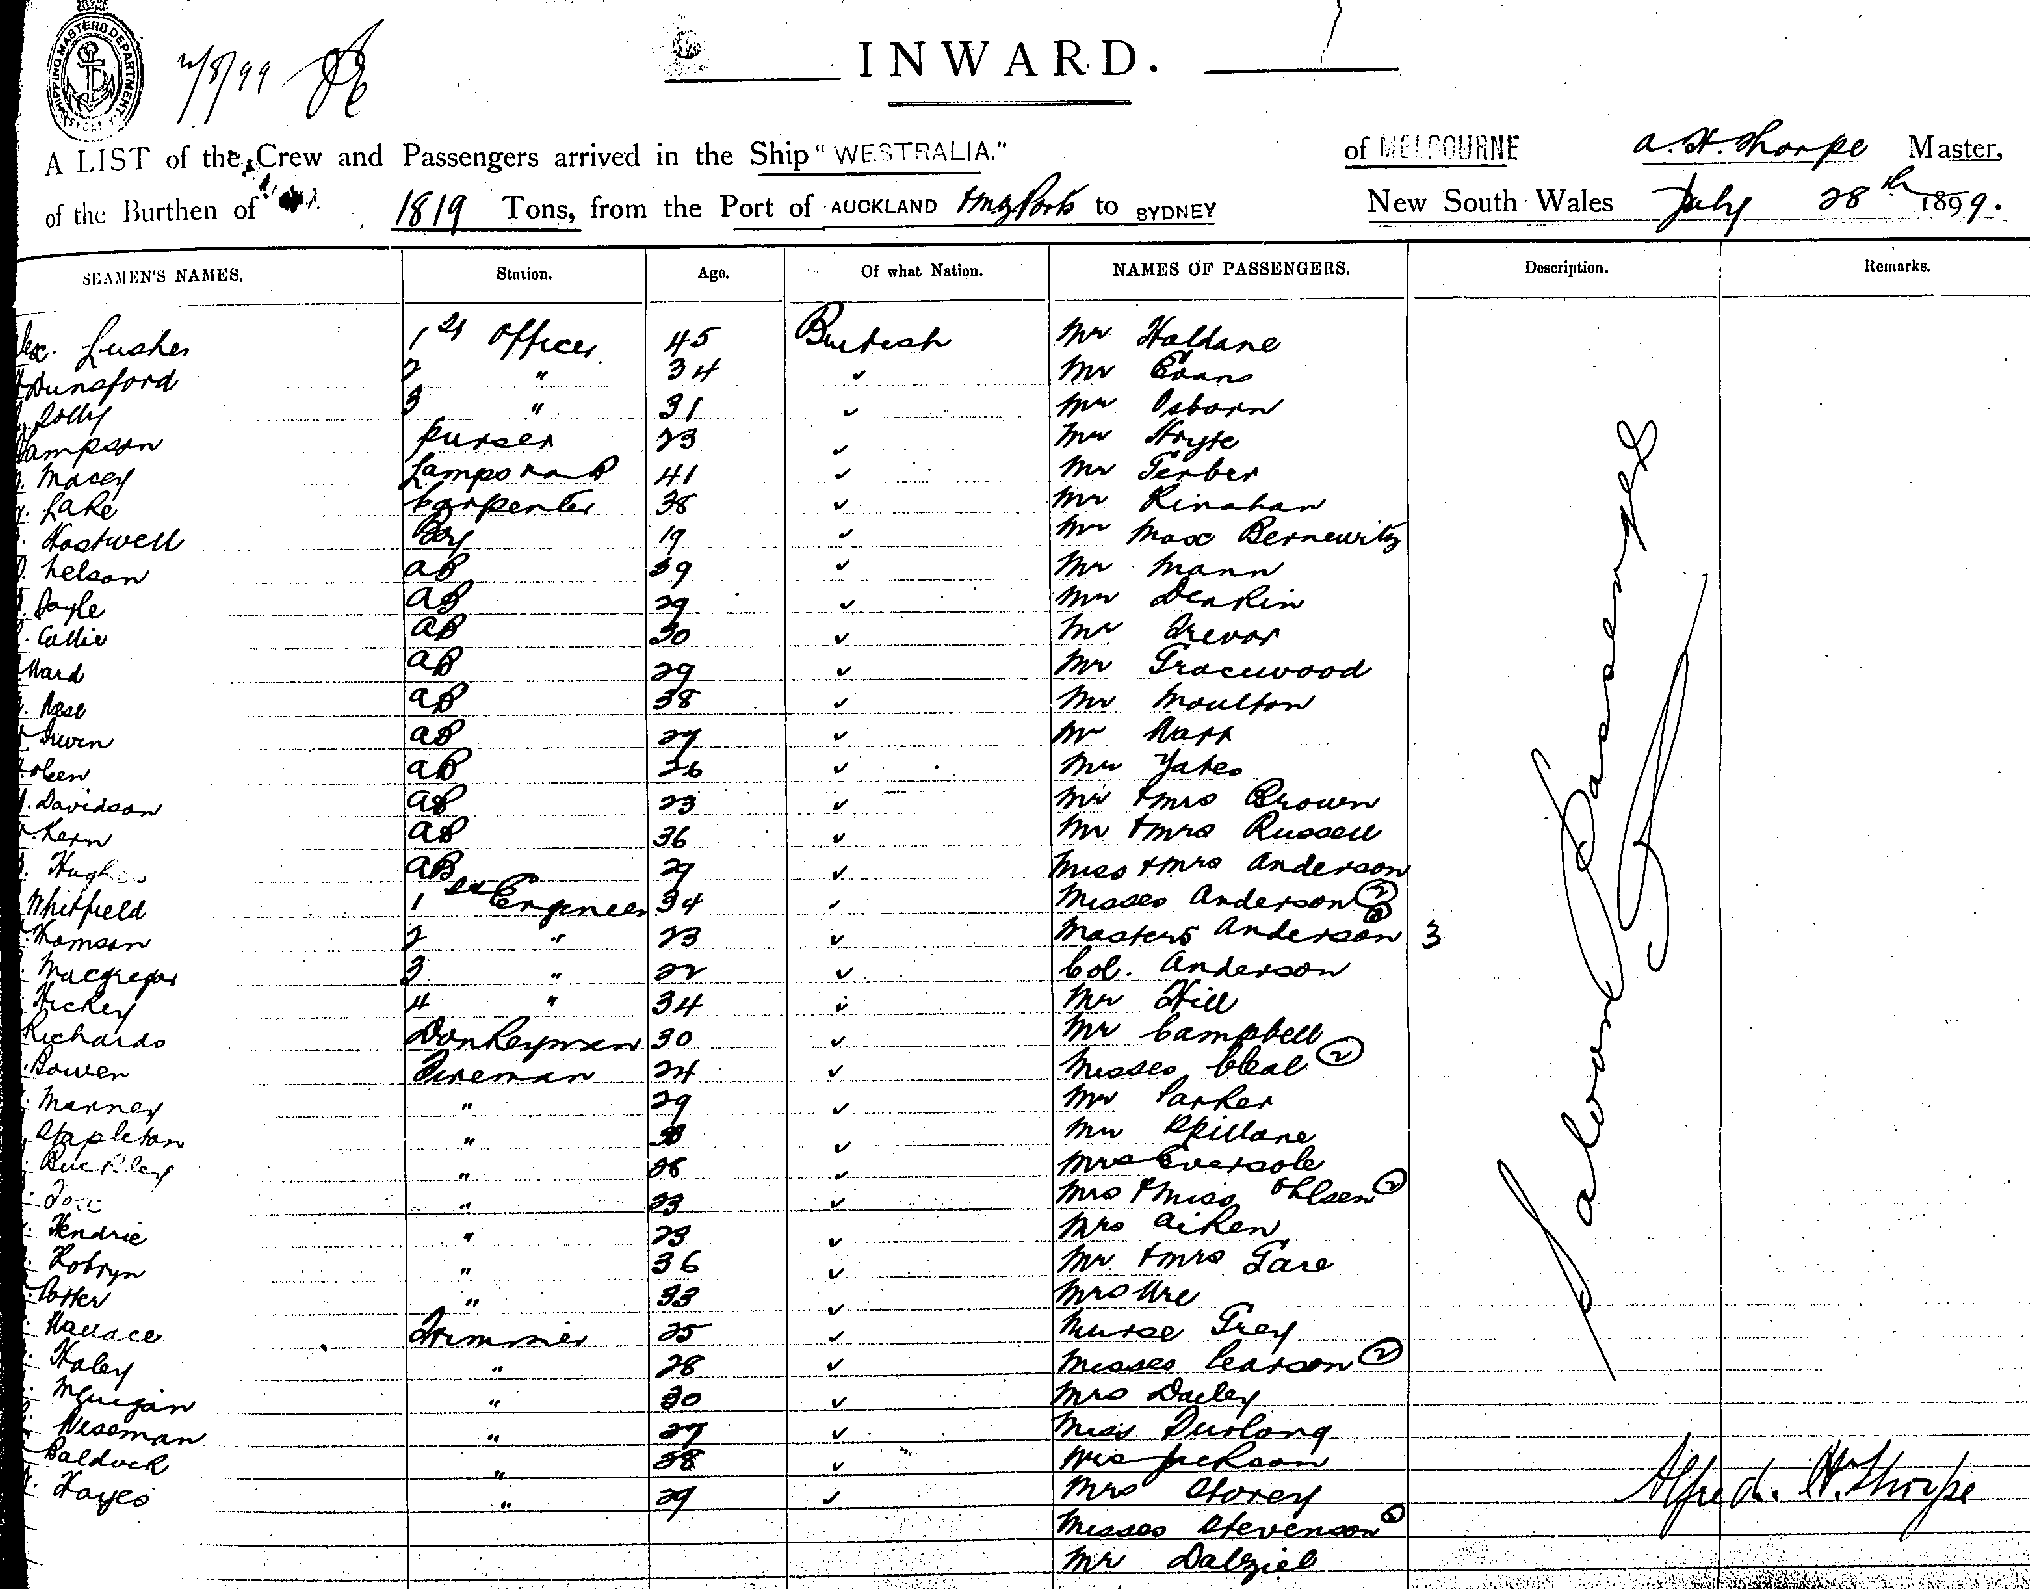 SHIPPING MASTERS DEPARTMENT
2/8/99
INWARD.
A LIST of the Crew and Passengers arrived in the Ship "WESTRALIA." of MELBOURNE A. H. Thorpe Master,
of the Burthen of 1819 Tons, from the Port of AUCKLAND to SYDNEY New South Wales July 28th 1899.
SEAMEN'S NAMES. Station. Age. Of what Nation. NAMES OF PASSENGERS. Description. Remarks.
Lusher 1st Officer 45 British Mr Haldane
Dunsford 2 " 34 ✓ Mr Evans
Jolly 3 " 31 ✓ Mr Osborn
Sampson Purser 23 ✓ Mr Hoyte
Macey Lamps 41 ✓ Mr Ferber
Lake Carpenter 38 ✓ Mr Kinahan
Hastwell Boy 19 ✓ Mr Max Bernewitz
Nelson AB 39 ✓ Mr Mann
Doyle AB 29 ✓ Mr Deakin
Callie AB 30 ✓ Mr Trevor
Ward AB 29 ✓ Mr Gracewood
AB 38 ✓ Mr Moulton
Irwin AB 27 ✓ Mr
Olsen AB 26 ✓ Mr Yates
Davidson AB 23 ✓ Mr & Mrs Brown
Kern AB 36 ✓ Mr & Mrs Russell
Hughes AB 29 ✓ Miss & Mrs Anderson
Whitfield 1st Engineer 34 ✓ Misses Anderson 2
Thomson 2 " 23 ✓ Masters Anderson 3
Macgregor 3 " 22 ✓ Col. Anderson
Hickey 4 " 34 ✓ Mr Hill
Richards Donkeyman 30 ✓ Mr Campbell
Bowen Fireman 24 ✓ Misses Cleal 2
Manney " 29 ✓ Mr Parker
Stapleton " ✓ Mr Spillane
Buckley " 28 ✓ Mrs Eversole
" 23 ✓ Mrs & Miss Ohlsen 2
Hendrie " 23 ✓ Mrs Aiken
Kobryn " 36 ✓ Mr & Mrs Gare
Potter " 33 ✓ Mrs Ure
Wallace Trimmer 25 ✓ Nurse Grey
Haley " 28 ✓ Misses Pearson 2
McGuigan " 30 ✓ Mrs Dailey
Wiseman " 27 ✓ Miss Furlong
Baldock " 38 ✓ Jackson
Hayes " 29 ✓ Mrs Storey
Misses Stevenson
Mr Dalziel
Saloon Passengers
Alfred H. Thorpe